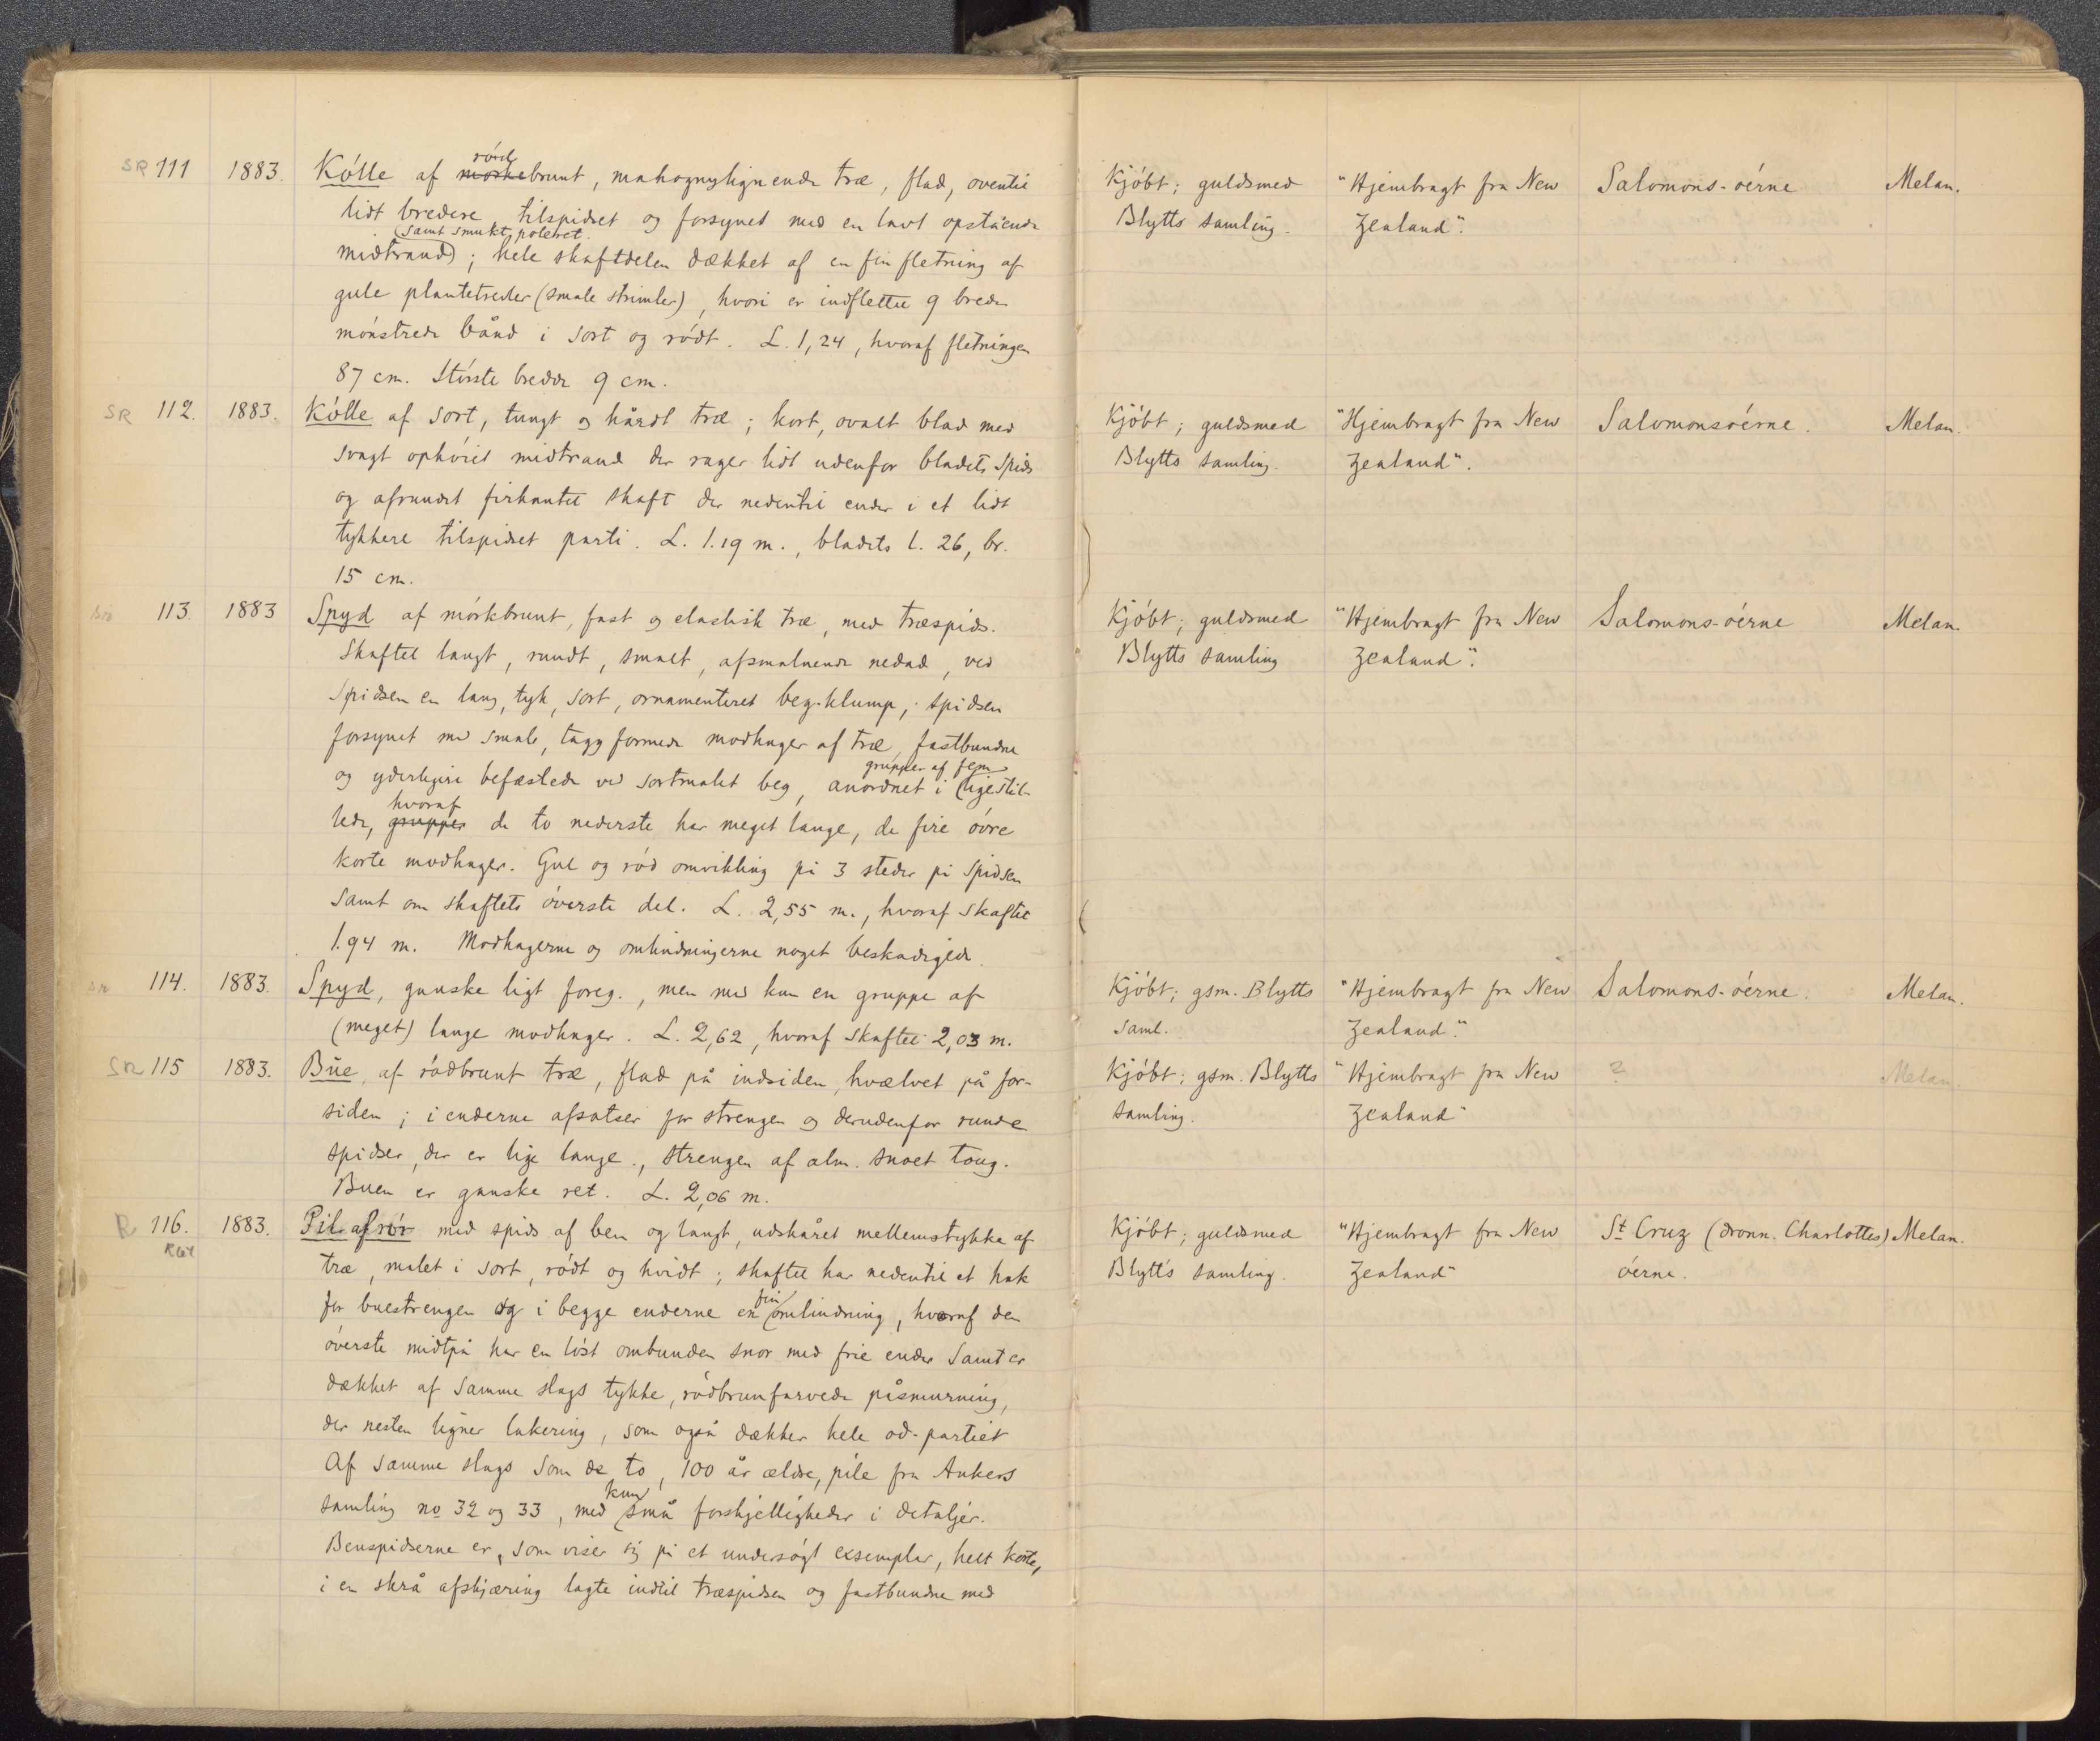 SR 111 1883. Kölle af rød mørkebrunt, mahognylignende træ, flad, oventil
lidt bredere, tilspidset og forsynet med en lavt opstående
samt smukt poleret.
midtrand; hele skaftdelen dækket af en fin fletning af
gule plantetrevler (smale strimler), hvori er indflettet 9 brede
mönstrede bånd i sort og rödt. L. 1,24, hvoraf fletningen
87 cm. Störste bredde 9 cm.
Kjöbt; guldsmed "Hjembragt fra New Salomons-öerne Melan.
Blytts samling. Zealand".
SR 112. 1883. Kölle af sort, tungt og hårdt træ; kort, ovalt blad med
svagt ophöiet midtrand der rager lidt udenfor bladets spids
og afrundet firkantet skaft der nedentil ender i et lidt
tykkere tilspidset parti. L. 1.19 m., bladets l. 26, br.
15 cm.
Kjöbt; guldsmed "Hjembragt fra New Salomonsöerne. Melan.
Blytts samling. Zealand".
SR 113. 1883 Spyd af mörkbrunt, fast og elastisk træ, med træspids.
Skaftet langt, rundt, smalt, afsmalnende nedad, ved
Spidsen en lang, tyk, sort, ornamenteret beg-klump; spidsen
forsynet med smale, tagg formede modhager af træ, fastbundne
og yderligere befæstede ved sortmalet beg, anordnet i grupper af fem ligestil-
lede, hvoraf grupper de to nederste har meget lange, de fire övre
korte modhager. Gul og röd omvikling på 3 steder på spidsen
samt om skaftets överste del. L. 2,55 m., hvoraf skaftet
1.94 m. Modhagerne og omvindningerne noget beskadigede.
Kjöbt; guldsmed "Hjembragt fra New Salomons-öerne Melan.
Blytts samling Zealand".
SR 114. 1883. Spyd, ganske ligt foreg., men med kun en gruppe af
(meget) lange modhager. L. 2,62, hvoraf skaftet 2,03 m.
Kjöbt; gsm. Blytts "Hjembragt fra New Salomons-öerne. Melan.
saml. Zealand."
SR 115 1883. Bue, af rödbrunt træ, flad på indsiden, hvælvet på for-
siden; i enderne afsatser for strengen og derudenfor runde
spidser, der er lige lange., strengen af alm. snoet toug.
Buen er ganske ret. L. 2,06 m.
Kjöbt; gsm. Blytts "Hjembragt fra New ? Melan.
samling. Zealand"
R 116. 1883. Pil af rör med spids af ben og langt, udskåret mellemstykke af
træ, malet i sort, rödt og hvidt; skaftet har nedentil et hak
for buestrengen og i begge enderne en fin omvindning, hvoraf den
överste midtpå har en löst ombunden snor med frie ender samt er
dækket af samme slags tykke, rödbrunfarvede påsmurning,
der nesten ligner lakering, som også dækker hele od-partiet
Af samme slags som de to, 100 år ældre, pile fra Ankers
samling no 32 og 33, med kun små forskjelligheder i detaljer.
Benspidserne er, som viser sig på et undersögt exsemplar, helt korte,
i en skrå afskjæring lagte indtil træspidsen og fastbundne med
Kjöbt; guldsmed "Hjembragt fra New St Cruz (dronn. Charlottes) Melan.
Blytts samling. Zealand" öerne.